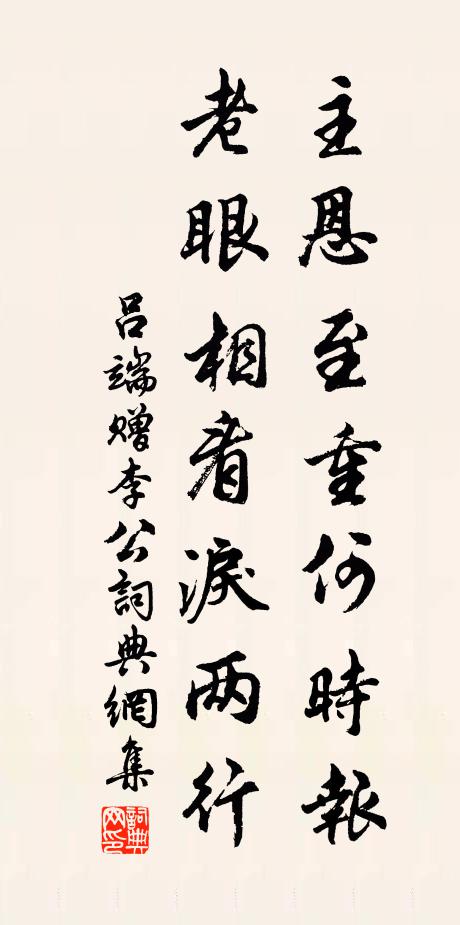 主恩至重何時報
老眼相看淚两行
吕端赠李公詞典網集
詞典网印